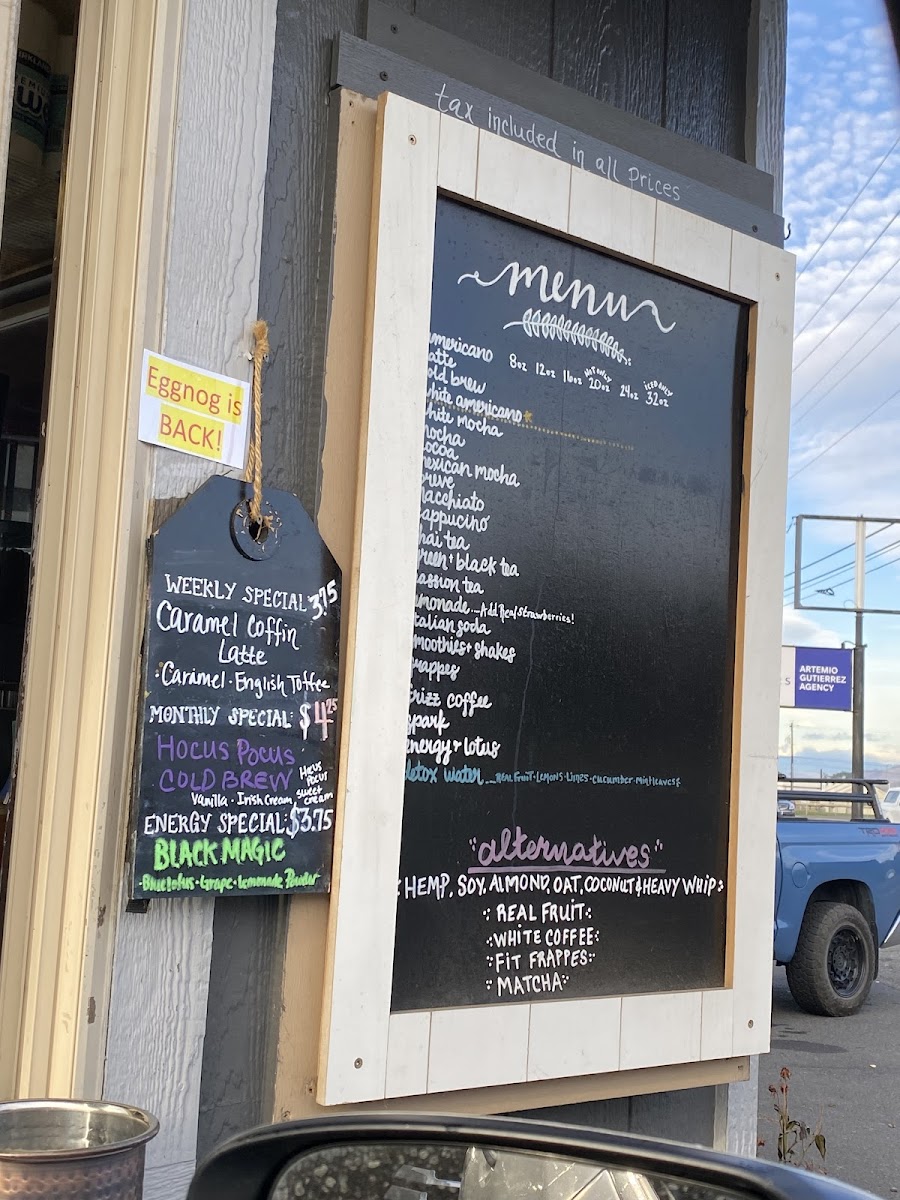 tax included in all prices
Eggnog is
BACK!
WEEKLY SPECIAL 3.75
Caramel Coffin
Latte
·Caramel·English Toffee
MONTHLY SPECIAL: $4.25
HOCUS POCUS
COLD BREW
Vanilla·Irish Cream
Hocus
Pocus
sweet
cream
ENERGY SPECIAL: $3.75
BLACK MAGIC
·Blue lotus·Grape·Lemonade Powder
menu
8oz 12oz 16oz HOT ONLY 20oz 24oz ICED ONLY 32oz
mericano
atte
old brew
hite americano
hite mocha
mocha
ocoa
exican mocha
reve
acchiato
appucino
hai tea
reen + black tea
assion tea
emonade...Add Real Strawberries!
talian soda
moothies + shakes
rappes
rizz coffee
spark
energy + lotus
detox water...REAL FRUIT·LEMONS·LIMES·CUCUMBER·MINT LEAVES
"alternatives"
HEMP, SOY, ALMOND, OAT, COCONUT & HEAVY WHIP
REAL FRUIT
WHITE COFFEE
FIT FRAPPES
MATCHA
ARTEMIO
GUTIERREZ
AGENCY